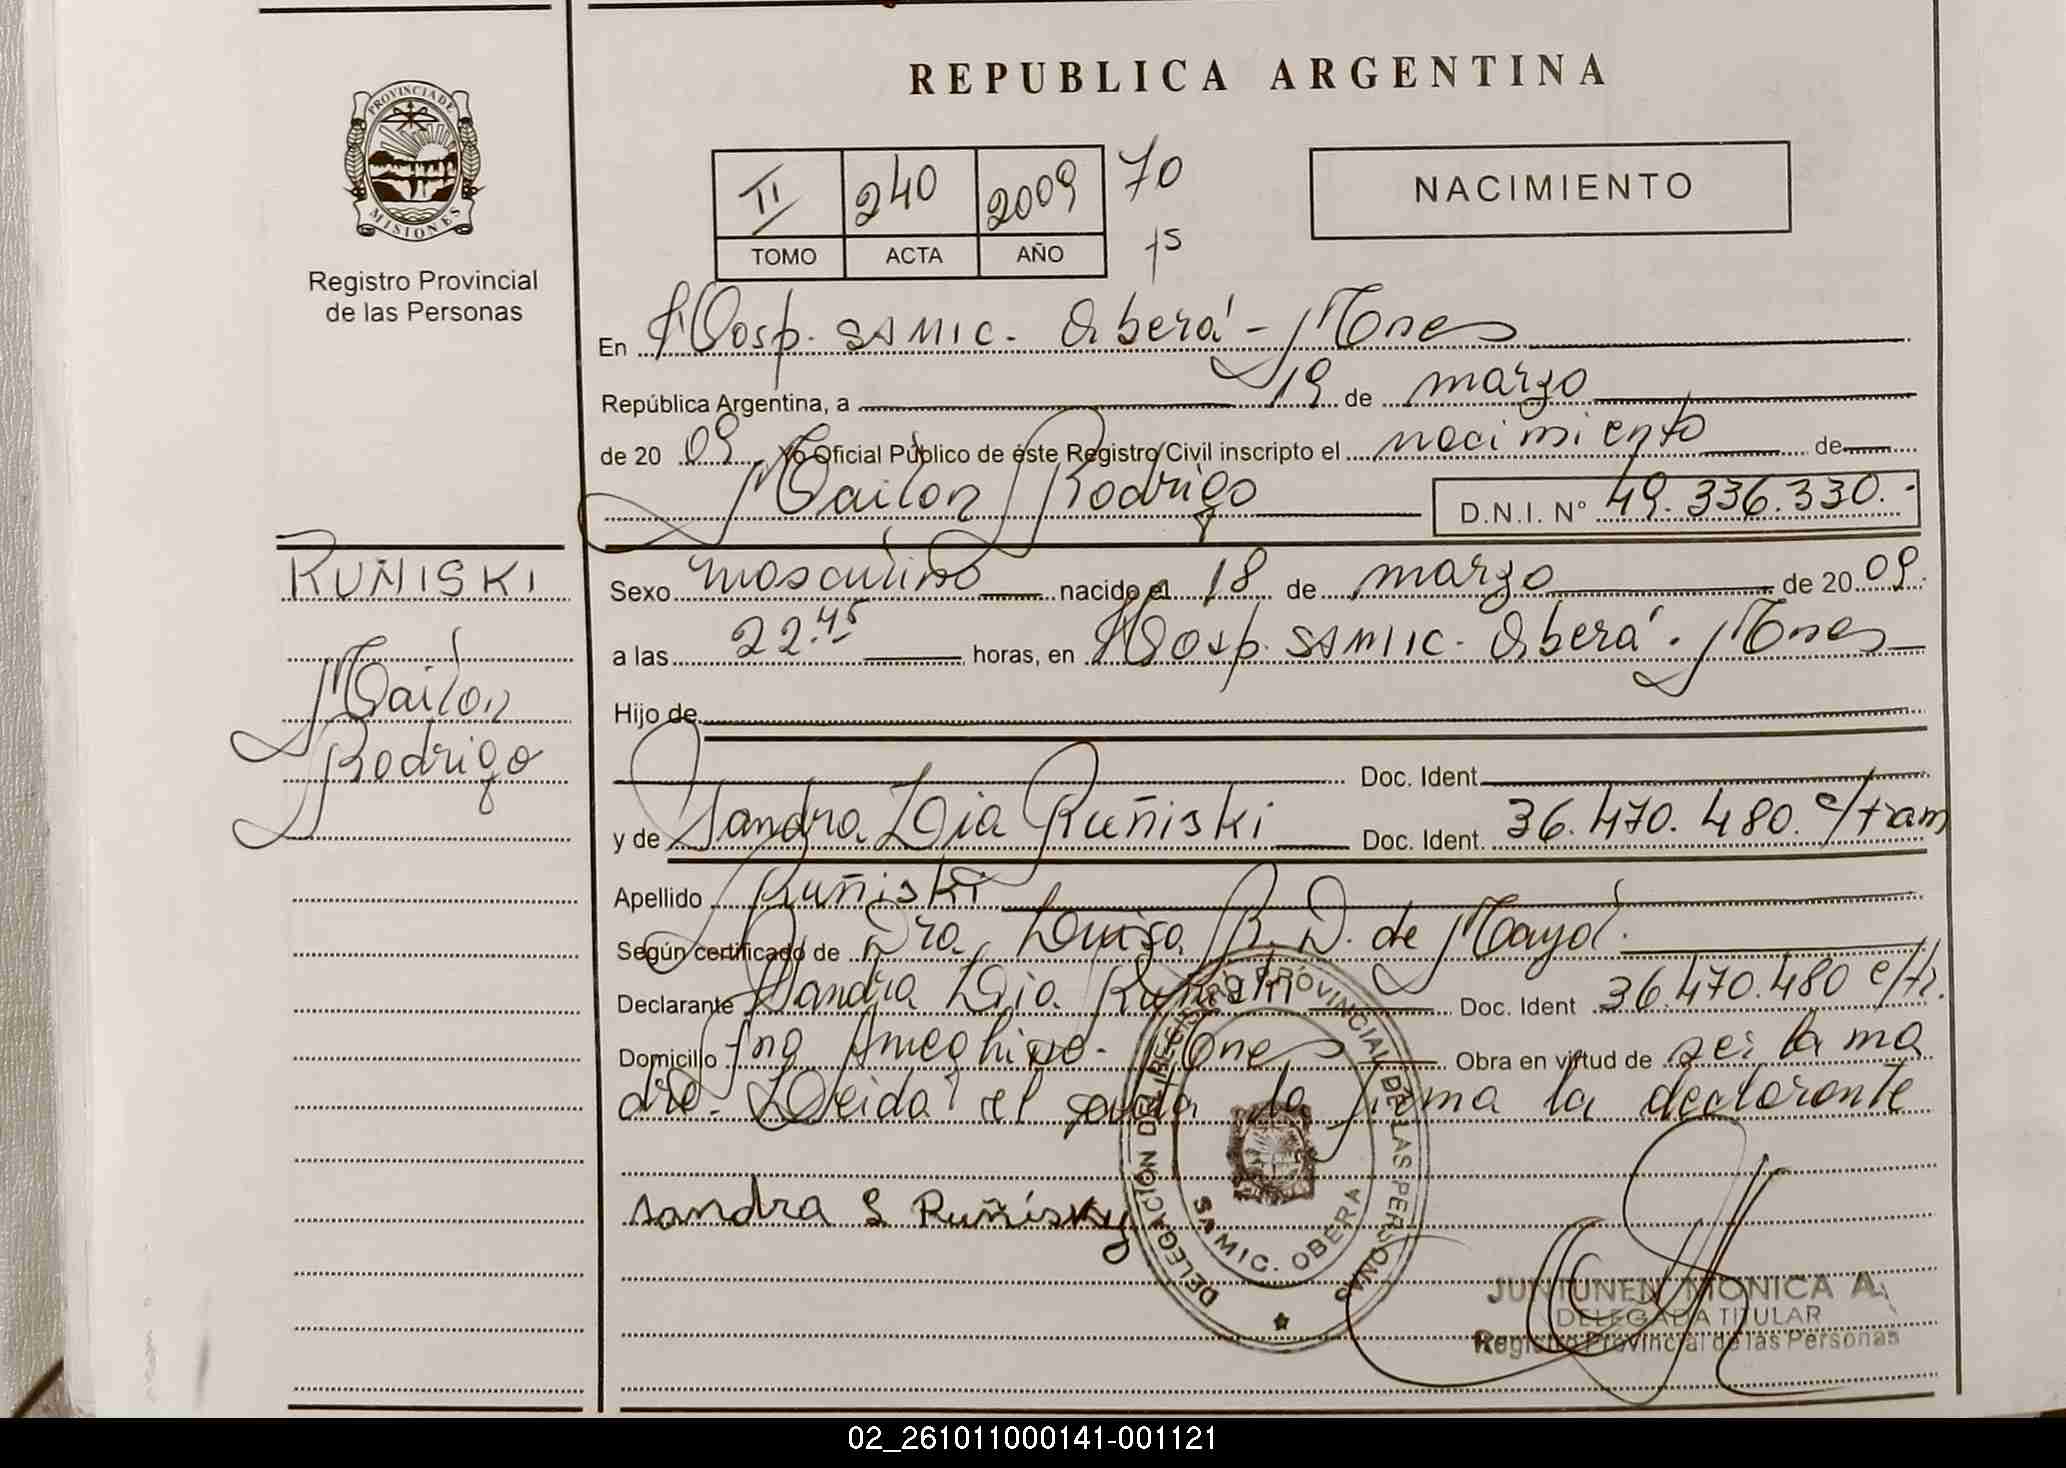 REPUBLICA ARGENTINA
PROVINCIA DE
MISIONES
Registro Provincial
de las Personas
II 240 2009 70
TOMO ACTA AÑO 15
NACIMIENTO
En Hosp. SAMIC. Oberá - Mnes
República Argentina, a 19 de marzo
de 2009 Yo Oficial Público de éste Registro Civil inscripto el nacimiento de
Mailon Rodrigo D.N.I. N° 49.336.330.-
RUÑISKI
Mailon
Rodrigo
Sexo masculino nacido el 18 de marzo de 2009
a las 22.45 horas, en Hosp. SAMIC. Oberá. Mnes
Hijo de
Doc. Ident.
y de Sandra Lia Ruñiski Doc. Ident. 36.470.480. c/tram
Apellido Ruñiski
Según certificado de Dra. Luisa R. D. de Mayol.
Declarante Sandra Lia Ruñiski Doc. Ident 36.470.480 c/tr.
Domicilio Ing Ameghino - Mnes Obra en virtud de ser la ma
dre. Leida el acta la firma la declarante
Sandra S Ruñisky
DELEGACIÓN DEL REGISTRO PROVINCIAL DE LAS PERSONAS
SAMIC. OBERA
JUNTUNEN MONICA A.
DELEGADA TITULAR
Registro Provincial de las Personas
02_261011000141-001121